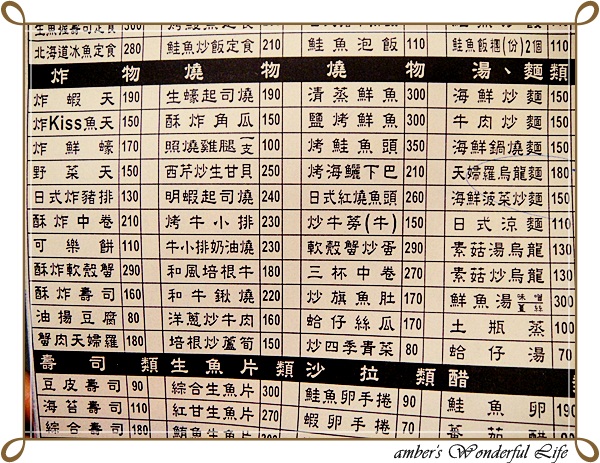 北海道冰魚定食 280 鮭魚炒飯定食 210 鮭魚泡飯 110 鮭魚飯糰(份)2個 110
炸物 燒物 燒物 湯、麵類
炸蝦天 190 生蠔起司燒 190 清蒸鮮魚 300 海鮮炒麵 150
炸Kiss魚天 150 酥炸角瓜 150 鹽烤鮮魚 300 牛肉炒麵 150
炸鮮蠔 170 照燒雞腿一支 100 烤鮭魚頭 350 海鮮鍋燒麵 150
野菜天 150 西芹炒生甘貝 250 烤海鱺下巴 210 天婦羅烏龍麵 180
日式炸豬排 130 明蝦起司燒 240 日式紅燒魚頭 260 海鮮菠菜炒麵 150
酥炸中卷 210 烤牛小排 230 炒牛蒡(牛) 150 日式涼麵 110
可樂餅 110 牛小排奶油燒 230 軟殼蟹炒蛋 290 素菇湯烏龍 130
酥炸軟殼蟹 290 和風培根牛 180 三杯中卷 270 素菇炒烏龍 130
酥炸壽司 160 和牛鍬燒 220 炒旗魚肚 170 鮮魚湯 味噌 薑絲 300
油揚豆腐 80 洋蔥炒牛肉 160 蛤仔絲瓜 170 土瓶蒸 100
蟹肉天婦羅 180 培根炒蘆筍 150 炒四季青菜 80 蛤仔湯 70
壽司類 生魚片類 沙拉類 醋
豆皮壽司 90 綜合生魚片 300 鮭魚卵手捲 90 鮭魚卵 190
海苔壽司 110 紅甘生魚片 270 蝦卵手捲 70
綜合壽司 180 鮪魚生魚片 300
amber's Wonderful Life